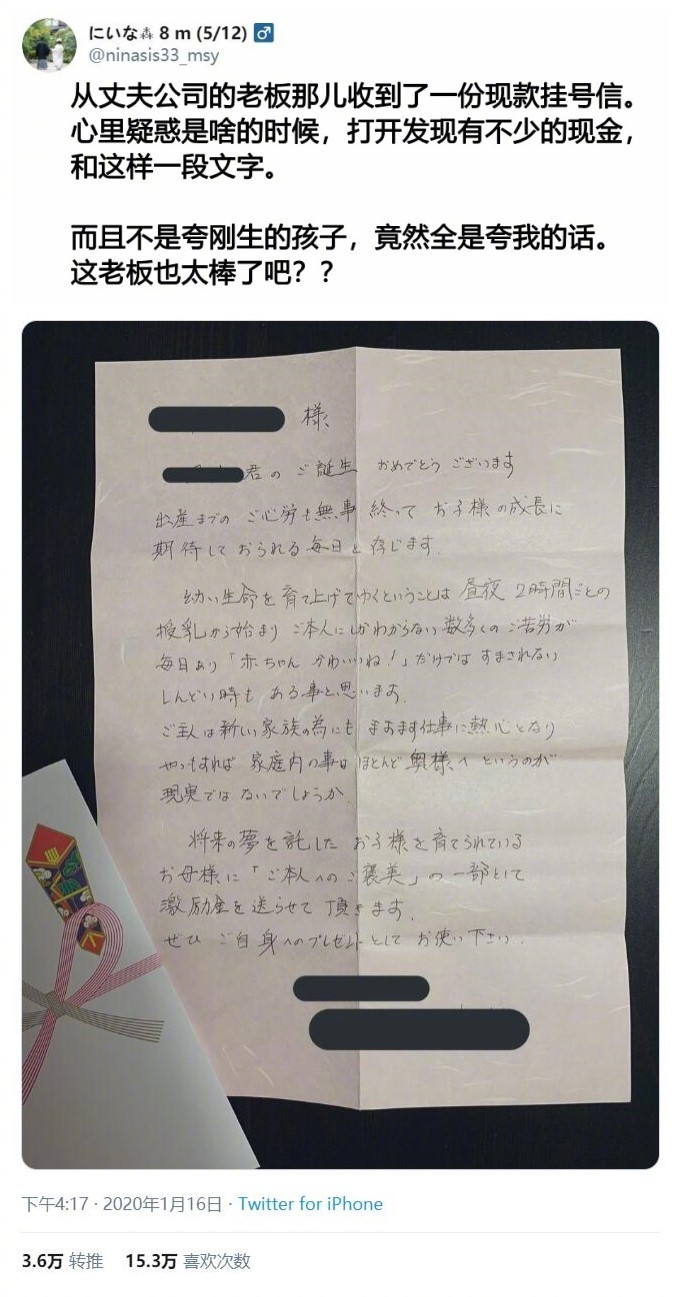 にいな🎍 8 m (5/12) ♂
@ninasis33_msy
从丈夫公司的老板那儿收到了一份现款挂号信。
心里疑惑是啥的时候，打开发现有不少的现金，
和这样一段文字。
而且不是夸刚生的孩子，竟然全是夸我的话。
这老板也太棒了吧？？
様
君の ご誕生 おめでとう ございます
出産までの ご心労も無事 終って お子様の成長に
期待して おられる毎日と存じます.
幼い生命を育て上げてゆくということは 昼夜 2時間ごとの
授乳から始まり ご本人にしかわからない数多くの ご苦労が
毎日あり「赤ちゃん かわいいね!」だけでは すまされない
しんどい時も ある事と思います.
ご主人は新しい家族の為にも ますます仕事に熱心となり
やゝもすれば 家庭内の事は ほとんど奥様へ というのが
現実では ないでしょうか
将来の夢を託した お子様を育てられている
お母様に「ご本人へのご褒美」の一部として
激励金を送らせて 頂きます.
ぜひ ご自身へのプレゼントとして お使い下さい.
下午4:17 · 2020年1月16日 · Twitter for iPhone
3.6万 转推 15.3万 喜欢次数